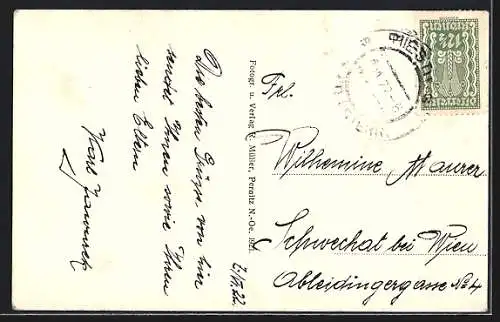 Die besten Grüsse von hier
sendet Ihnen sowie Ihren
lieben Eltern
Karl
2./VI.22.
Fotogr. u. Verlag v. Müller, Pernitz N.-Oe.
PIESTI
12½
Frl.
Wilhemine Maurer
Schwechat bei Wien
Ableidingergasse No 4